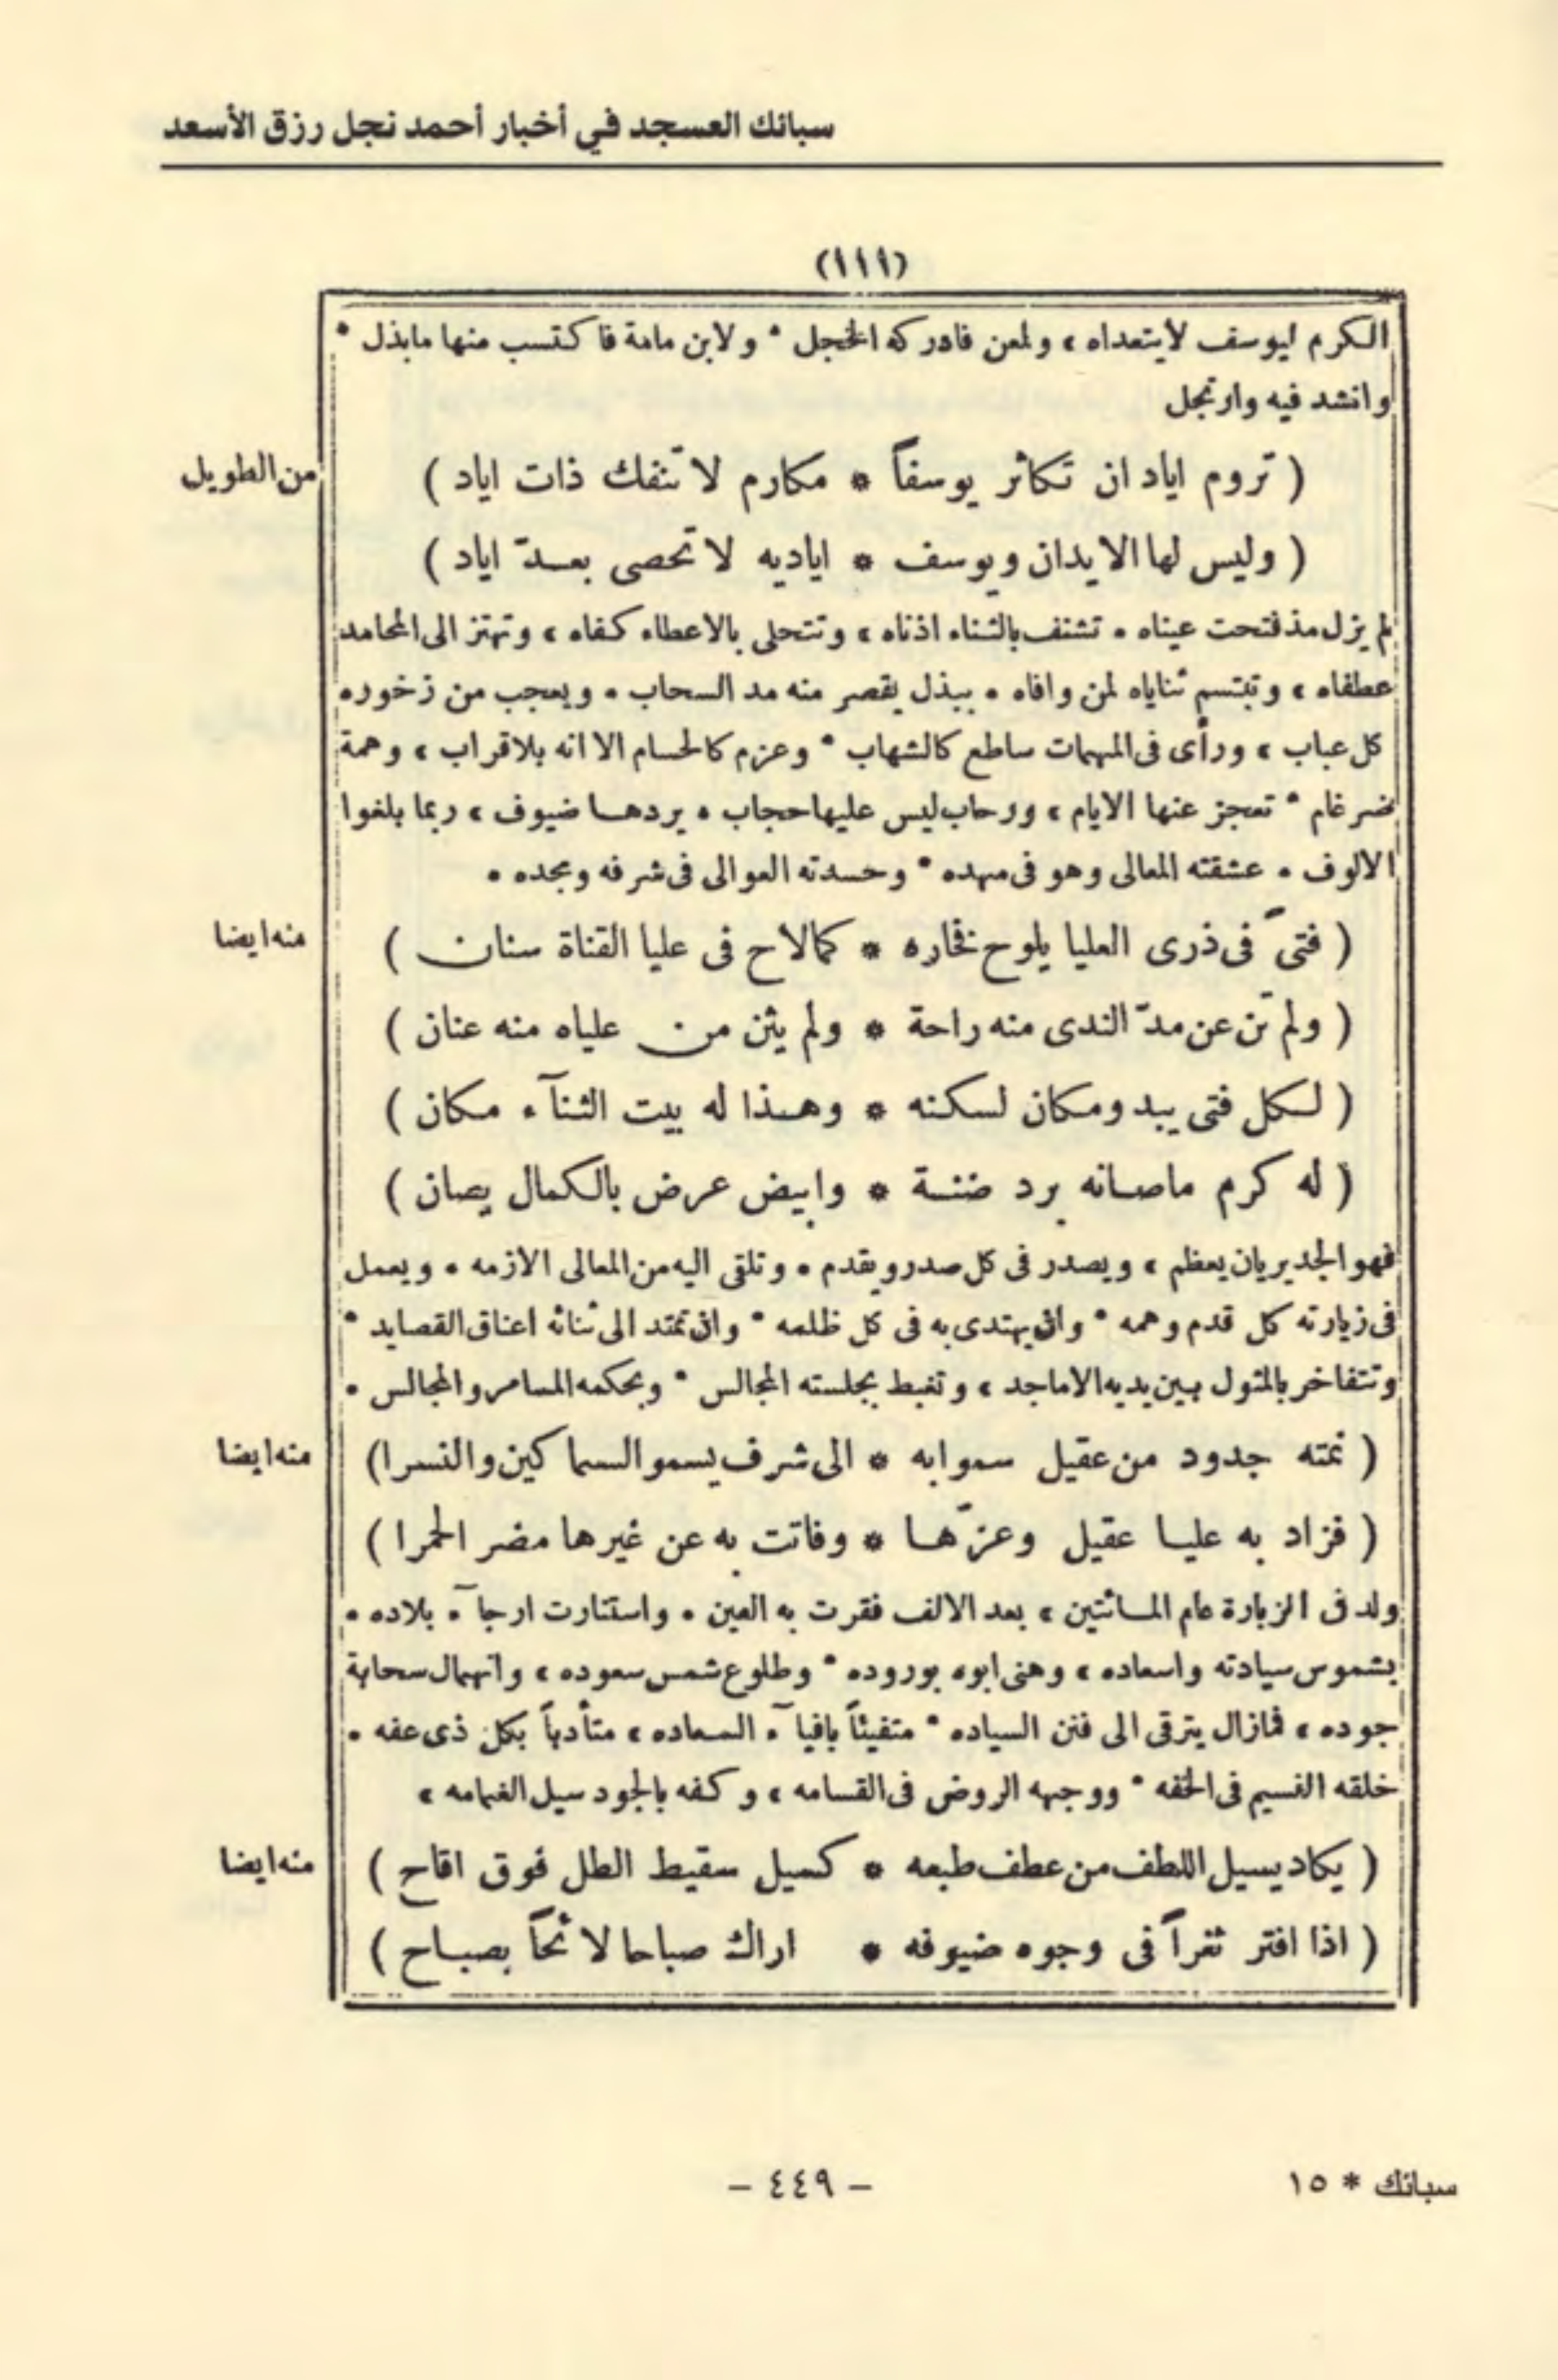 سبائك العسجد في أخبار أحمد نجل رزق الأسعد
(١١١)
الكرم ليوسف لا يتعداه ، ولمعن فادركه الخجل * ولابن مامة فاكتسب منها مابذل *
وانشد فيه وارتجل
من الطويل
( تروم اياد ان تكاثر يوسفاً * مكارم لا تنفك ذات اياد )
( وليس لها الا يدان ويوسف * اياديه لا تحصى بعدّ اياد )
لم يزل مذ فتحت عيناه * تشنف بالثناء اذناه ، وتتحلى بالاعطاء كفاه ، وتهتز الى المحامد
عطفاه ، وتبتسم ثناياه لمن وافاه * ببذل يقصر منه مد السحاب * ويعجب من زخوره
كل عباب ، ورأى فى المهمات ساطع كالشهاب * وعزم كالحسام الا انه بلا قراب ، وهمة
ضرغام * تعجز عنها الايام ، ورحاب ليس عليها حجاب * يردها ضيوف ، ربما بلغوا
الالوف * عشقته المعالى وهو فى مهده * وحسدته العوالى فى شرفه ومجده *
منه ايضا
( فتىً فى ذرى العليا يلوح فخاره * كمالاح فى عليا القناة سنان )
( ولم تن عن مدّ الندى منه راحة * ولم يثن من علياه منه عنان )
( لكل فتى يبدو مكان لسكنه * وهذا له بيت الثنآء مكان )
( له كرم ماصانه برد ضنة * وابيض عرض بالكمال يصان )
فهو الجدير بان يعظم ، ويصدر فى كل صدر ويقدم * وتلقى اليه من المعالى الازمه * ويعمل
فى زيارته كل قدم وهمه * وان يهتدى به فى كل ظلمه * وان تمتد الى ثنائه اعناق القصايد *
وتتفاخر بالمثول بين يديه الاماجد ، وتغبط بجلسته المجالس * وبحكمه المسامر والمجالس *
منه ايضا
( نمته جدود من عقيل سموا به * الى شرف يسمو السماكين والنسرا)
( فزاد به عليا عقيل وعزّها * وفاتت به عن غيرها مضر الحمرا )
ولد فى الزبارة عام المائتين ، بعد الالف فقرت به العين * واستنارت ارجآء بلاده *
بشموس سيادته واسعاده ، وهنى ابوه بوروده * وطلوع شمس سعوده ، وانهمال سحابة
جوده ، فمازال يترقى الى فنن السياده * متفيئاً بافيآء السعاده ، متأدباً بكل ذى عفه *
خلقه النسيم فى الخفه * ووجهه الروض فى القسامه ، وكفه بالجود سيل الغمامه ،
منه ايضا
( يكاد يسيل اللطف من عطف طبعه * كسيل سقيط الطل فوق اقاح )
( اذا افتر ثغراً فى وجوه ضيوفه * اراك صباحا لائحاً بصباح )
سبائك * ١٥
– ٤٤٩ –